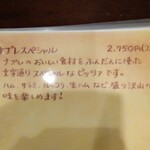 ナプレスペシャル 2,950円(
ナプレのおいしい食材をふんだんに使った
文字通りスペシャルなピッツァです。
ハム、サラミ、ルッコラ、生ハムなど盛り沢山の
味を楽しめます!